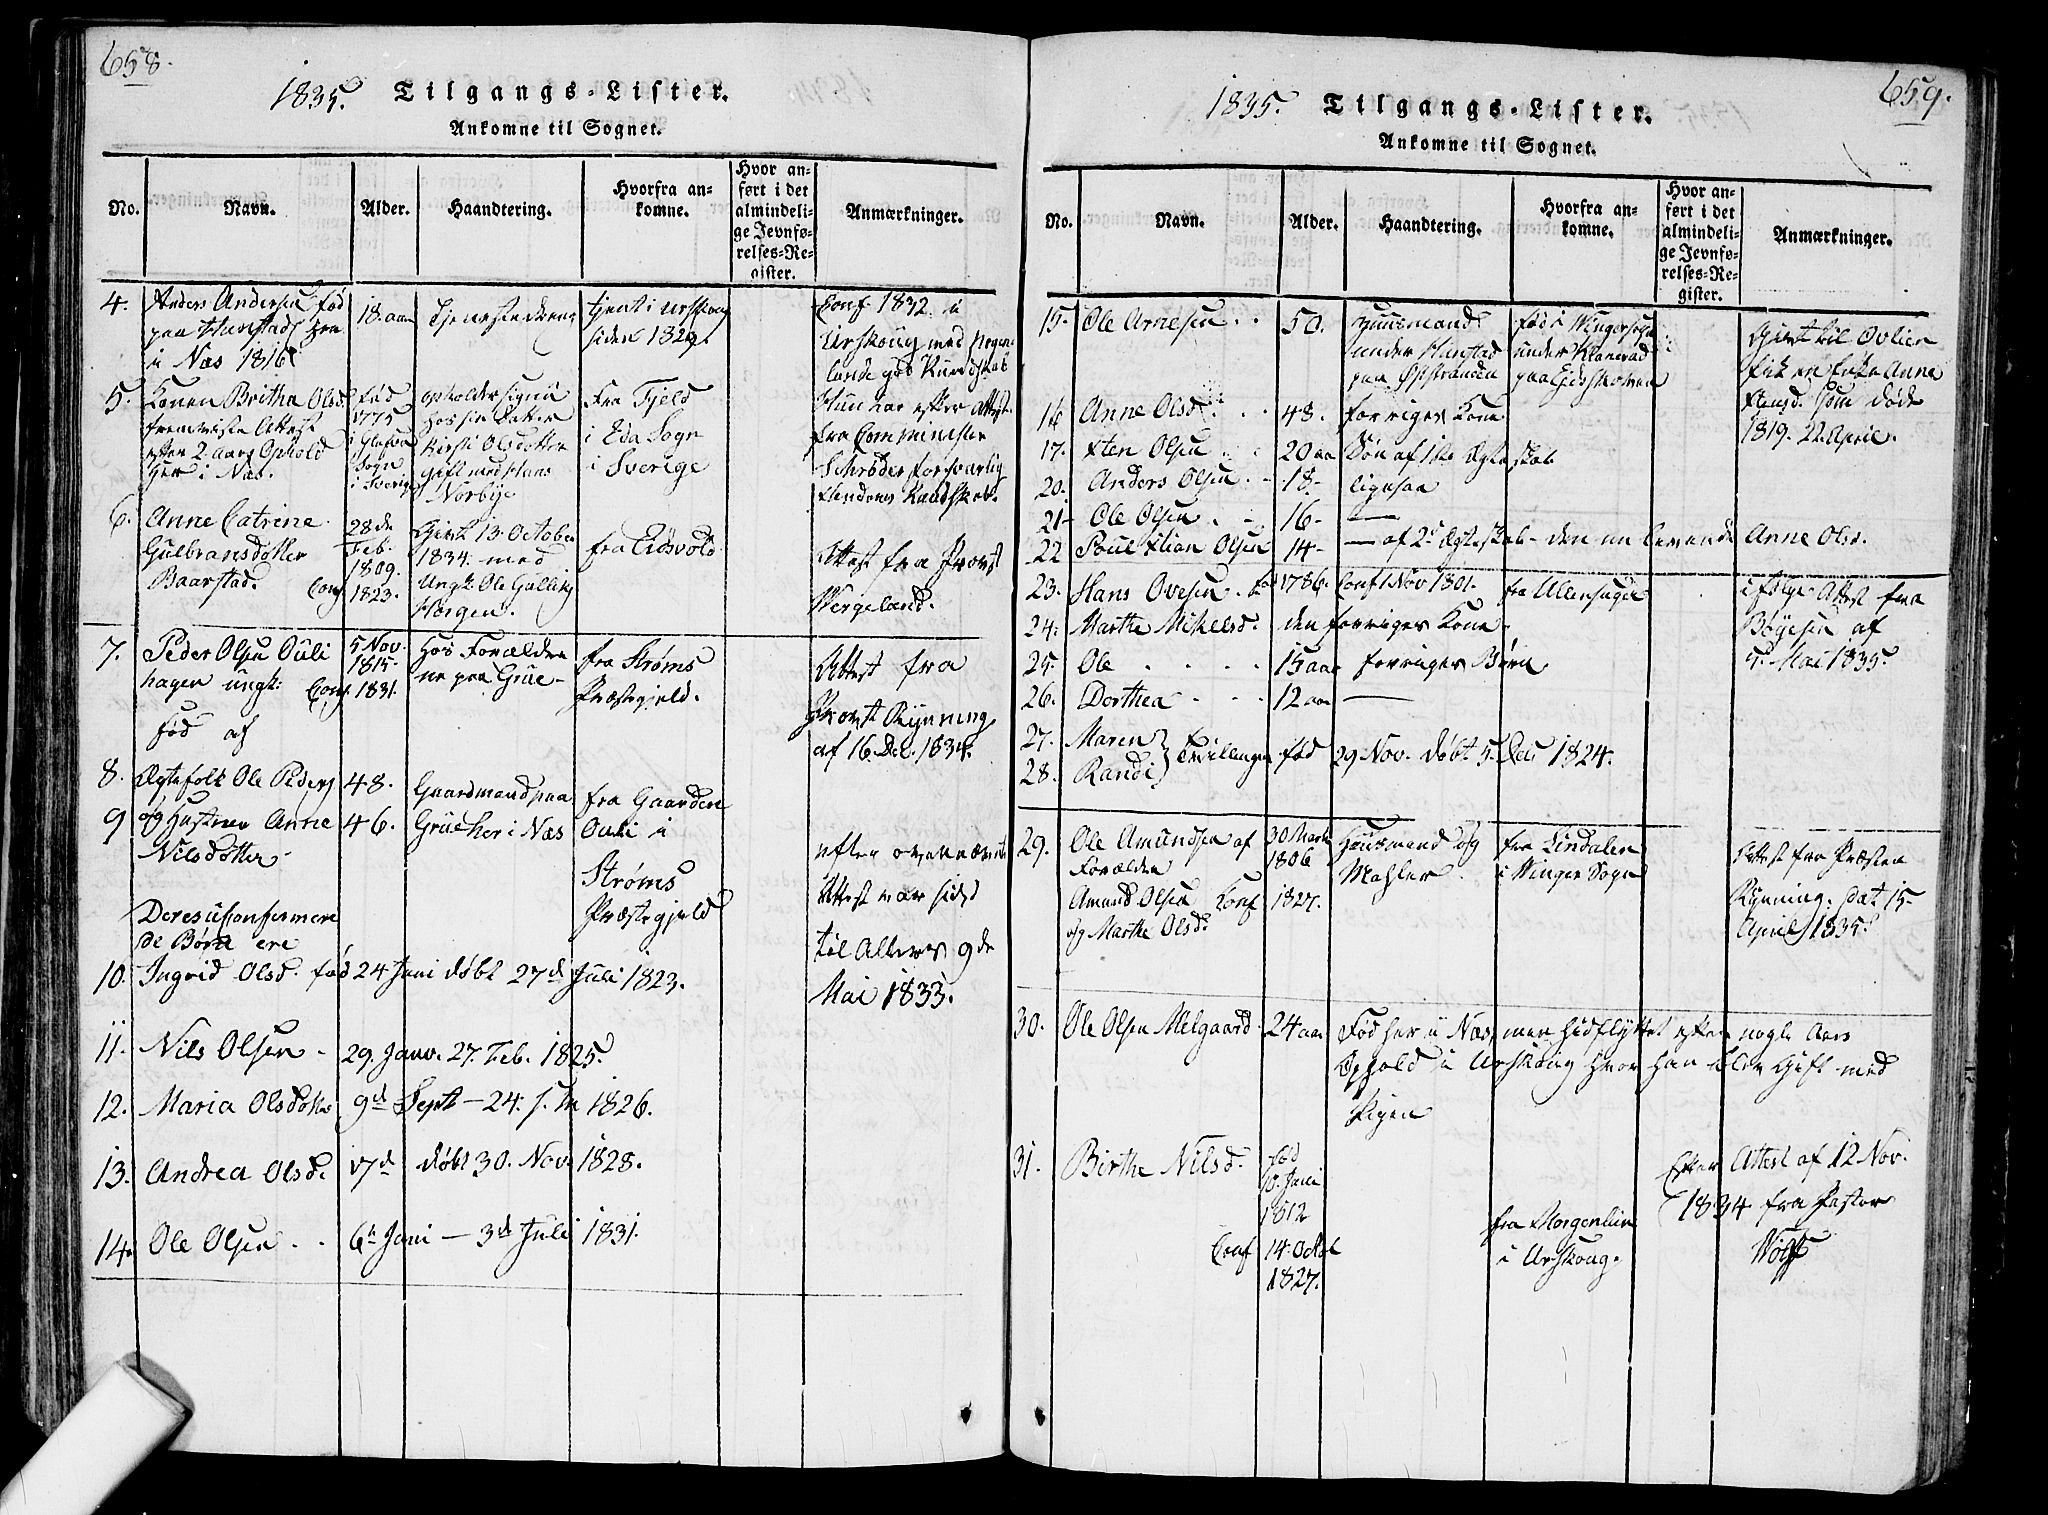 658.
1835. Tilgangs-Lister.
Ankomne til Sognet.
No. Navn. Alder. Haandtering. Hvorfra ankomne. Hvor anført i det almindelige Jevnførelses-Register. Anmærkninger.
4. Anders Andersen fød 18. aar Tjenestedreng tjent i Urskoug Conf. 1832. i
paa Hunstad her siden 1829. Urskoug med
i Næs 1816 god Kundskab
5. Konen Britha Olsd. fød opholder sig nu Fra Fjeld Hun har efter Attest
fremviste Attest 1775 hos sin Datter i Eda Sogn fra Comminister
efter 2 aars Ophold i Sogn Kirsti Olsdotter i Sverige Schrøder forsvarlig
her i Næs. i Sverige gift med Hans Kundskab.
Norbye
6. Anne Catrine 28de Givt 13. October fra Eidsvold Attest fra Provst
Gulbransdotter Feb. 1834. med Wergeland.
Baarstad. 1809. Ungk. Ole
Conf 1823. Horgen.
7. Peder Olsen Ouli 5 Nov. Hos Forældre fra Strøms Attest fra
hagen ungk: 1815. ne paa Grue Præstegjeld. Provst Rynning
Conf. 1831. af 16 Dec. 1834.
fød af
8. Ægtefolk Ole Peders 48. Gaardmand paa fra Gaarden
9 og Hustrue Anne 46. Grue her i Næs Ouli i efter ovennævnte
Nilsdotter Strøms Attest var sidst
Præstegjeld til Alters 9de
Deres uconfirmere Mai 1833.
de Børn ere
10. Ingrid Olsd. fød 24 Juni døbt 27d Juli 1823.
11. Nils Olsen 29. Janv. 27. Feb. 1825.
12. Maria Olsdotter 9d Sept - 24. s. M 1826.
13. Andrea Olsd. 17d døbt 30. Nov. 1828.
14. Ole Olsen 6te Juni - 3d Juli 1831.
659.
1835. Tilgangs-Lister.
Ankomne til Sognet.
No. Navn. Alder. Haandtering. Hvorfra ankomne. Hvor anført i det almindelige Jevnførelses-Register. Anmærkninger.
15. Ole Arnesen 50. Huusmand fød i Wingersogn Givt til
under Hunstad under fik en Anne
paa Øststranden paa Eidsskoven som døde
16 Anne Olsd. 48. forriges Kone 1819. 22. April.
17. Sten Olsen 20 aar Søn af 1ste Ægteskab
20. Anders Olsen 18. ligesaa
21 Ole Olsen 16 —
22 Poul Olsen 14 — af 2d Ægteskab den nu levende Anne Olsd.
23. Hans Ovesen fød 1786. Conf 1 Nov 1801. fra Ullensager ifølge Attest fra
24. Marthe Mikelsd. den forriges Kone Bøyesen af
25. Ole 15 aar forriges Børn 5. Mai 1835.
26. Dorthea 12 aar —
27. Maren
28. Randi } Tvillinger fød 29 Nov. døbt 5. Dec 1824.
29. Ole Amundsen af 30 Marts Huusmand og fra Lindalen Attest fra Præsten
Forældre 1806 Mahler i Winger Sogn Rynning. dat 15
Amund Olsen Conf 1827. April 1835.
og Marthe Olsd.
30. Ole Olsen Melgaard 24 aar Fød her i Næs, men hidflyttet efter nogle Aars
Ophold i Urskoug hvor han blev Gift med
Pigen
31. Birthe Nilsd. fød Efter Attest af 12 Nov.
10. Juni 1834 fra Pastor
1812 fra Morgenlien Wolff
Conf 14. Octob i Urskoug.
1827.